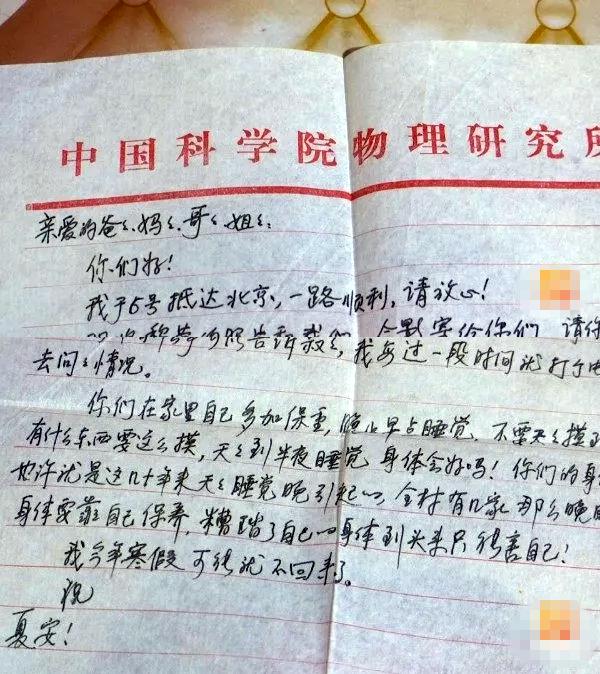 中国科学院物理研究所
亲爱的爸爸、妈妈、哥哥、姐姐:
你们好!
我于6号抵达北京,一路顺利,请放心!
给你们 请你
去问问情况。 我每过一段时间就打个电
你们在家里自己多加保重,晚上早点睡觉 不要天天摸到
有什么东西要这么摸,天天到半夜睡觉 身体会好吗!你们的身
也许就是这几十年来天天睡觉晚引起的,全村有几家那么晚
身体要靠自己保养,糟蹋了自己的身体到头来只能害自己!
我今年寒假可能就不回来了。
祝
夏安!